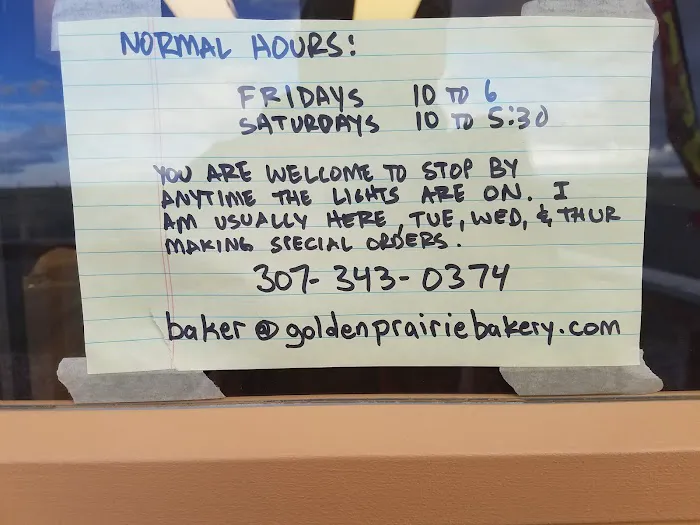 NORMAL HOURS:
FRIDAYS 10 TO 6
SATURDAYS 10 TO 5:30
YOU ARE WELCOME TO STOP BY
ANYTIME THE LIGHTS ARE ON. I
AM USUALLY HERE TUE, WED, & THUR
MAKING SPECIAL ORDERS.
307-343-0374
baker@goldenprairiebakery.com